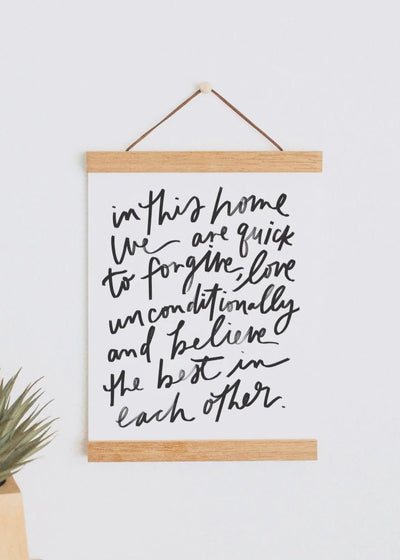 in this home
we are quick
to forgive, love
unconditionally
and believe
the best in
each other.